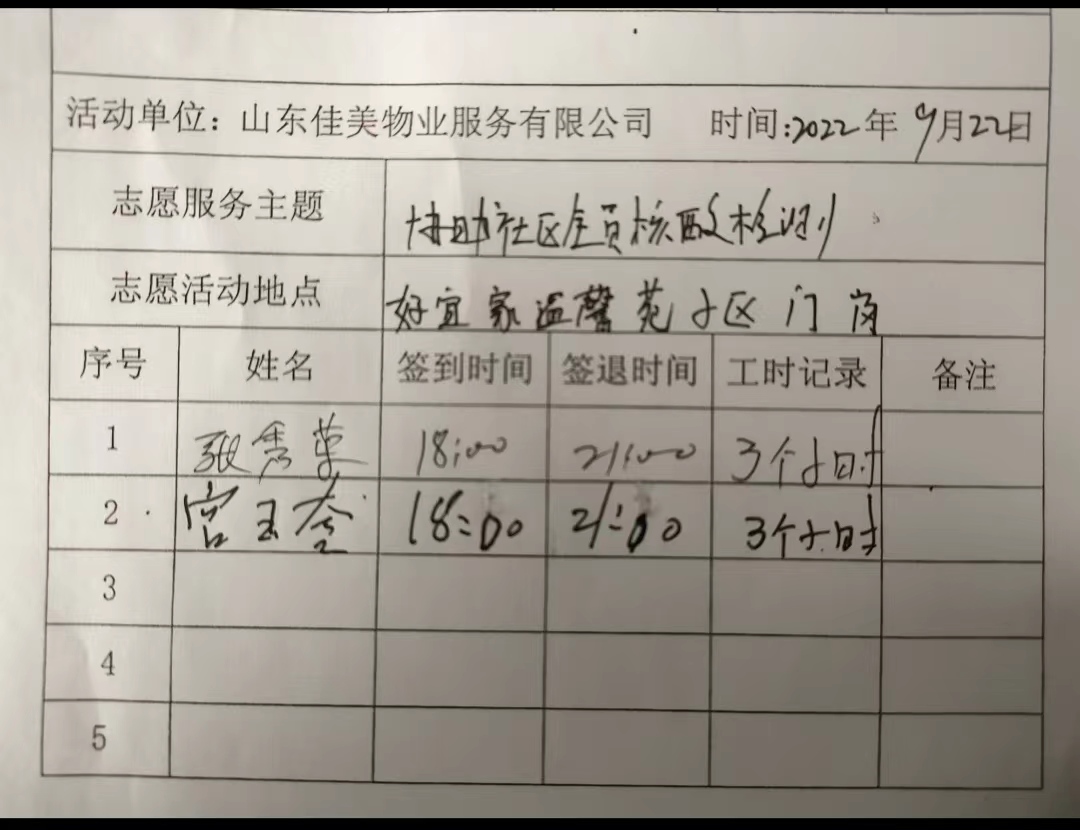 活动单位：山东佳美物业服务有限公司 时间:2022年9月22日
志愿服务主题 协助社区全员核酸检测
志愿活动地点 好宜家温馨苑小区门岗
序号 姓名 签到时间 签退时间 工时记录 备注
1 张秀 18:00 21:00 3个小时
2 宫玉 18:00 21:00 3个小时
3
4
5